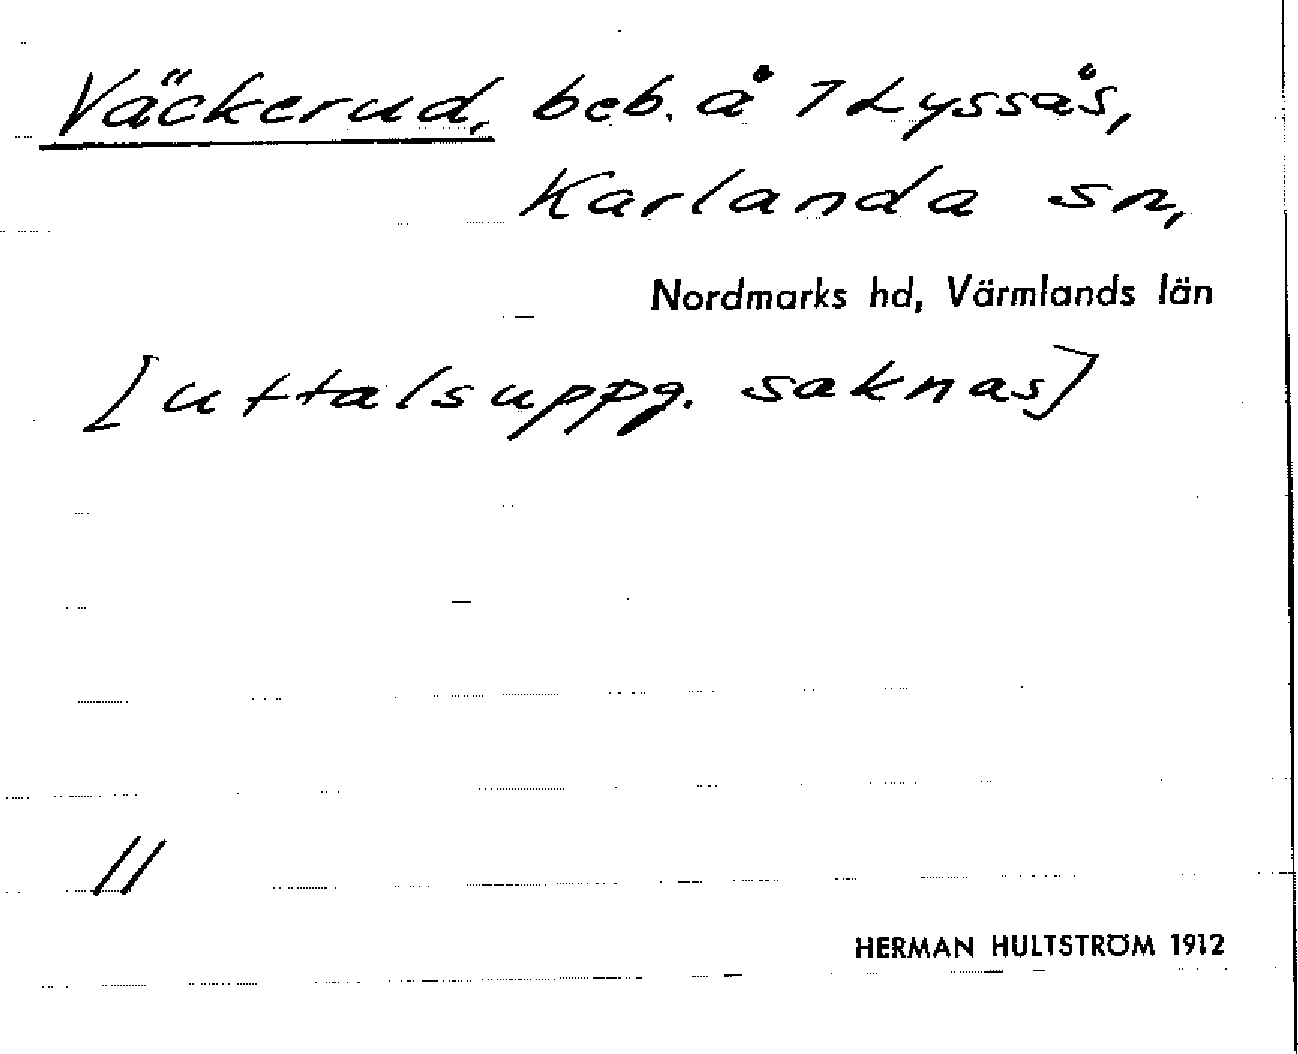 Väckerud, beb. å 7 Lyssås,
Karlanda sn,
Nordmarks hd, Värmlands län
[uttalsuppg. saknas]
11
HERMAN HULTSTRÖM 1912